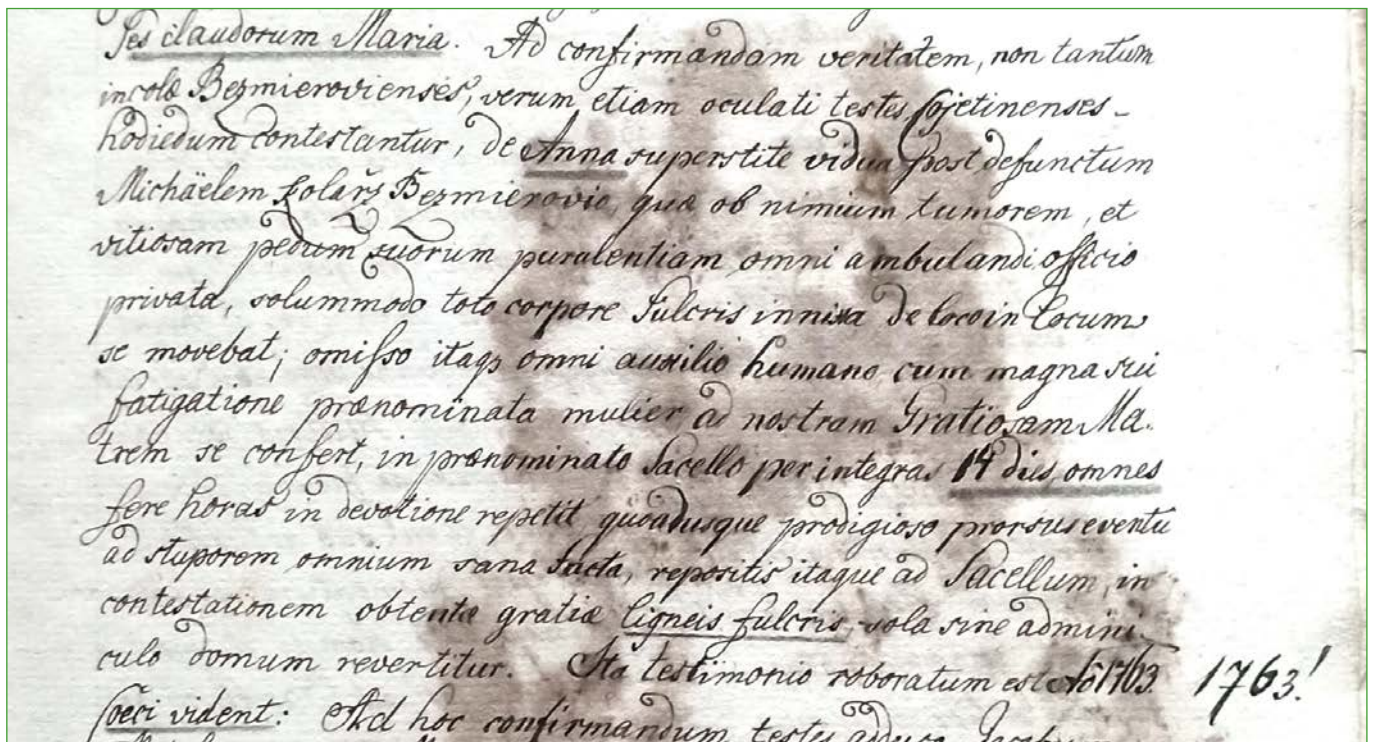 Pes claudorum Maria. Ad confirmandam veritatem, non tantum
incolæ Bezmierovienses, verum etiam oculati testes Cojetinenses
hodiedum contestantur, de Anna superstite vidua post defunctum
Michäelem Kolarz Bezmierovio, quæ ob nimium tumorem, et
vitiosam pedum suorum purulentiam omni ambulandi officio
privata, solummodo toto corpore fulcris innixa de loco in locum
se movebat; omisso itaqз omni auxilio humano cum magna sui
fatigatione prænominata mulier ad nostram Gratiosam Ma-
trem se confert, in prænominato Sacello per integras 14 dies, omnes
fere horas in devotione repetit quoadusque prodigioso prorsus eventu
ad stuporem omnium sana facta, repositis itaque ad Sacellum, in
contestationem obtentæ gratiæ ligneis fulcris, sola sine admini-
culo domum revertitur. Ita testimonio roboratum est Aõ 1763. 1763!
Cœci vident: Ad hoc confirmandum testes